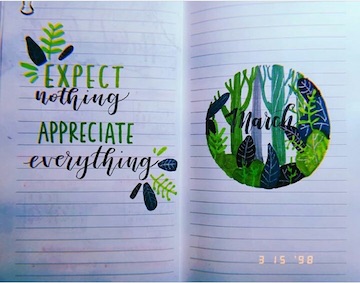 EXPECT
nothing
APPRECIATE
everything
March
3 15 '98